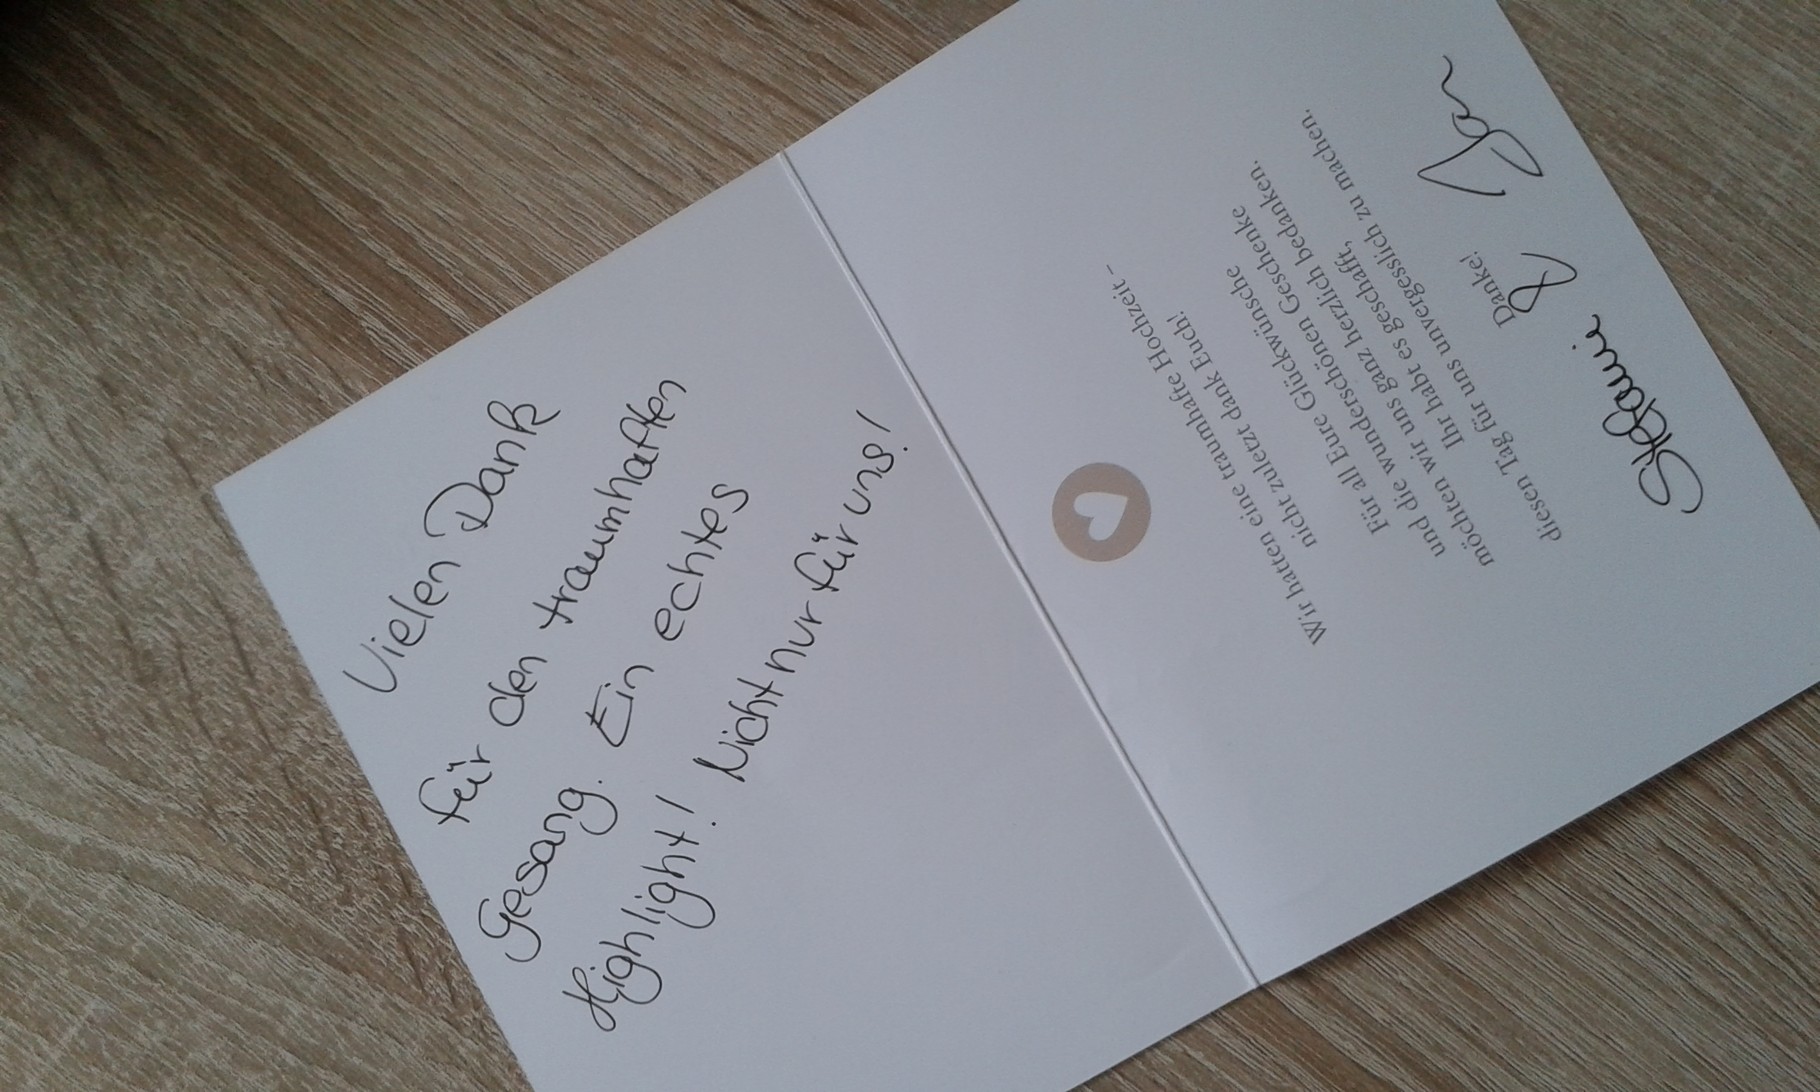 Vielen Dank
für den traumhaften
Gesang. Ein echtes
Highlight! Nicht nur für uns!
Wir hatten eine traumhafte Hochzeit –
nicht zuletzt dank Euch!
Für all Eure Glückwünsche
und die wunderschönen Geschenke
möchten wir uns ganz herzlich bedanken.
Ihr habt es geschafft,
diesen Tag für uns unvergesslich zu machen.
Danke!
Stefanie & Jan